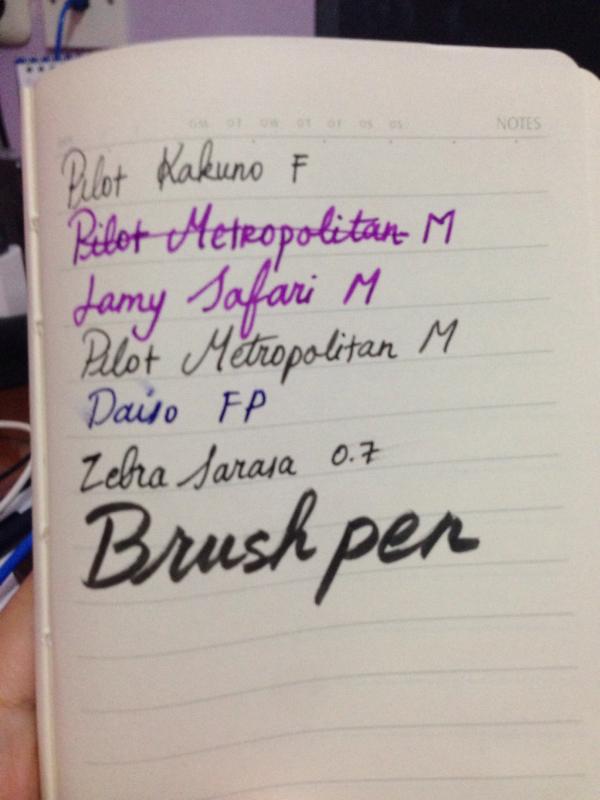 NOTES
Pilot Kakuno F
Pilot Metropolitan M
Lamy Safari M
Pilot Metropolitan M
Daiso FP
Zebra Sarasa 0.7
Brush pen